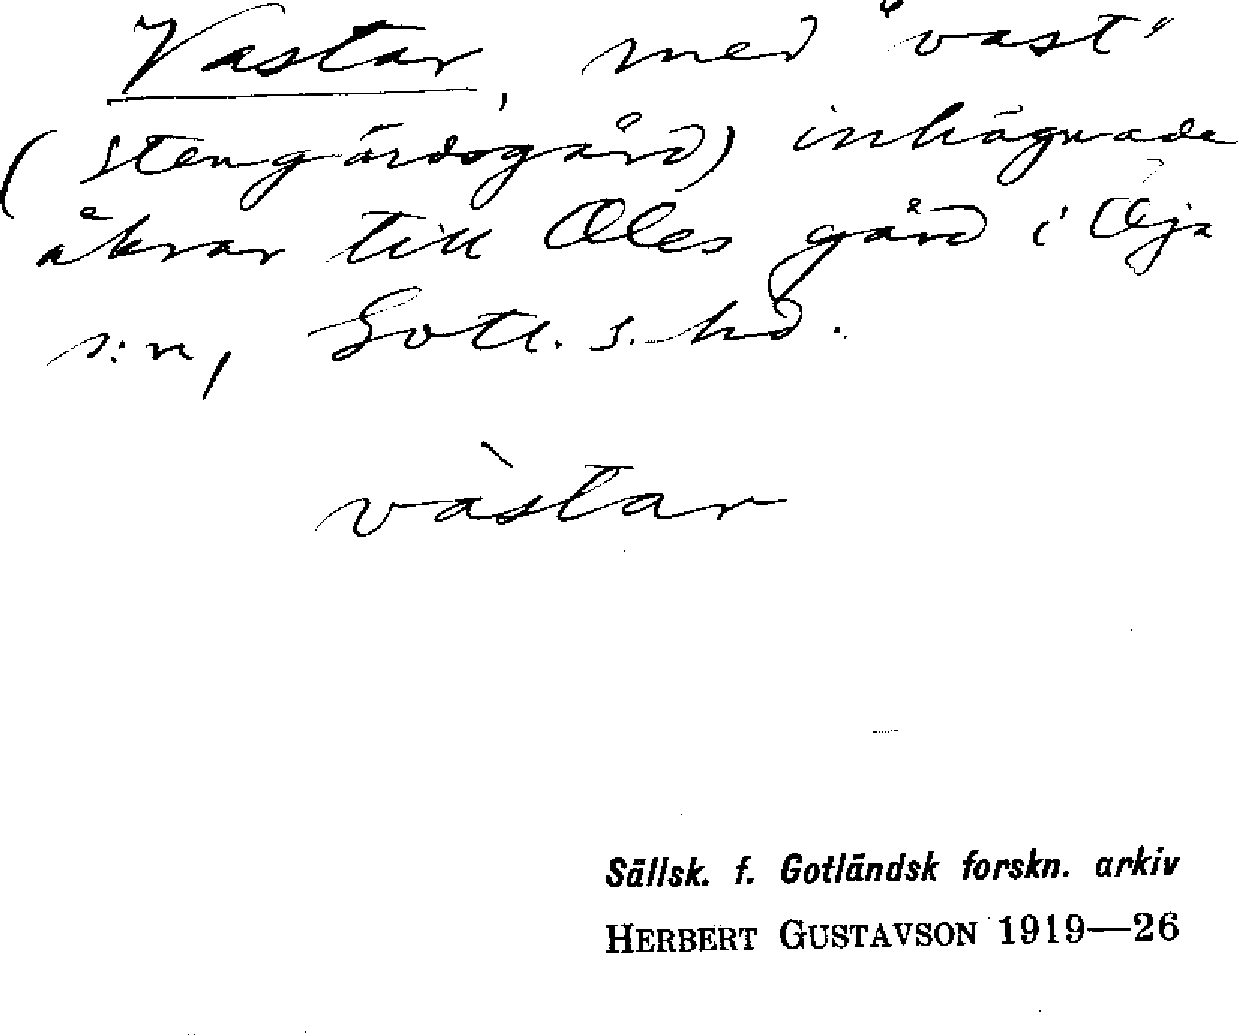 Vastar, med "vast"
(stengärdsgård) inhägnade
åkrar till Oles gård i Öja
s:n, Gotl. s. hd.
vàstar
Sällsk. f. Gotländsk forskn. arkiv
HERBERT GUSTAVSON 1919—26